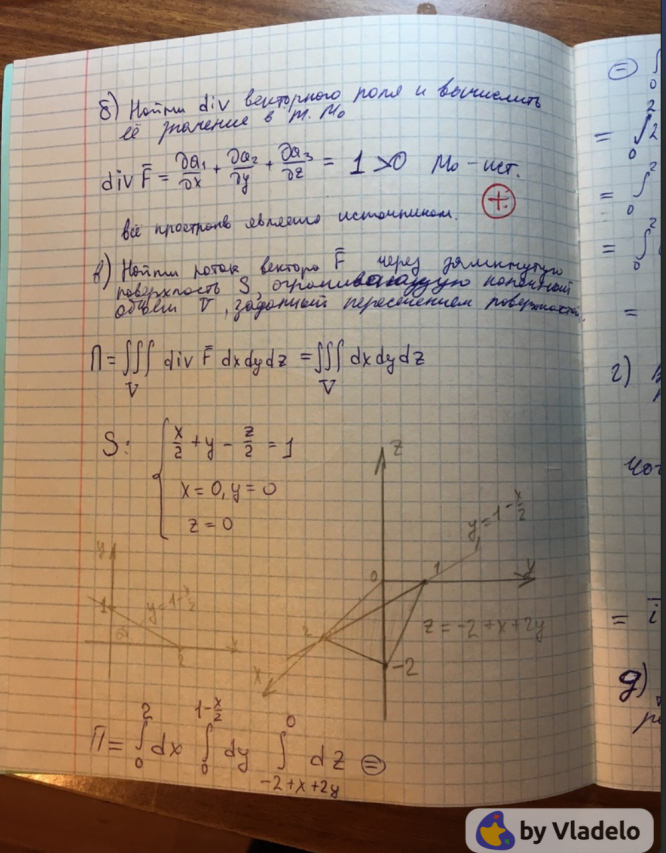 б) Найти div векторного поля и вычислить
её значение в т. M₀
div F̄ = ∂Q₁/∂x + ∂Q₂/∂y + ∂Q₃/∂z = 1 > 0 M₀ - ист.
всё простронв является источником.
+
в) Найти поток вектора F̄ через замкнутую
поверхность S, ограничивающую конечный
объём V, заданный пересечением поверхностей.
П = ∭ div F̄ dxdydz = ∭ dxdydz
V V
S: { x/2 + y - z/2 = 1
x = 0, y = 0
z = 0
z
y = 1 - x/2
0 1 y
2
z = -2 + x + 2y
-2
x
y
1 y = 1 - x/2
2 x
П = ∫₀² dx ∫₀^{1-x/2} dy ∫_{-2+x+2y}^{0} dz ⊜
⊜ ∫
0
2
= ∫ 2
0
2
= ∫
0
2
= ∫
0
=
г)
= i̅
д)
by Vladelo